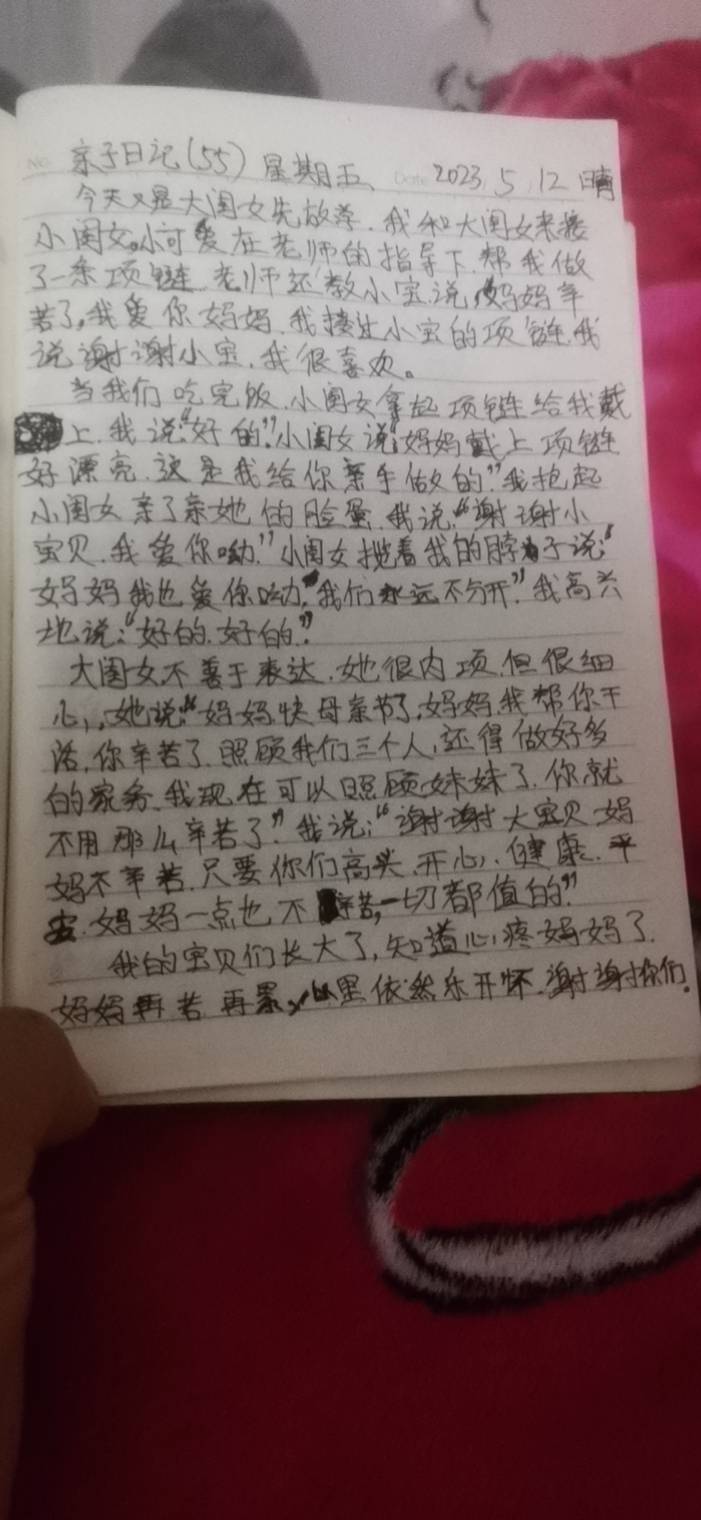 亲子日记(55) 星期五 Date 2023, 5, 12 晴
今天又是大闺女先放学.我和大闺女来接
小闺女。小可爱在老师的指导下.帮我做
了一条项链.老师还教小宝说,妈妈辛
苦了,我爱你妈妈.我接过小宝的项链.我
说谢谢小宝.我很喜欢。
当我们吃完饭.小闺女拿起项链给我戴
上.我说:“好的”.小闺女说:“妈妈戴上项链
好漂亮.这是我给你亲手做的.”我抱起
小闺女亲了亲她的脸蛋.我说:“谢谢小
宝贝.我爱你呦.”小闺女揽着我的脖子说:“
妈妈我也爱你呦.我们永远不分开.”我高兴
地说:“好的.好的.”
大闺女不善于表达.她很内项.但很细
心,她说:“妈妈.快母亲节了.妈妈.我帮你干
活.你辛苦了.照顾我们三个人,还得做好多
的家务.我现在可以照顾妹妹了.你就
不用那么辛苦了”.我说:“谢谢大宝贝.妈
妈不辛苦.只要你们高兴.开心,健康.平
安.妈妈一点也不辛苦,一切都值的.”
我的宝贝们长大了,知道心疼妈妈了.
妈妈再苦再累,心里依然乐开怀.谢谢你们。